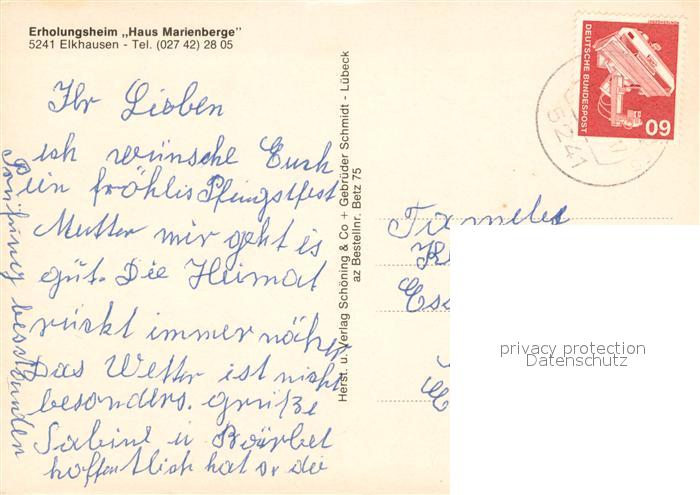 Erholungsheim „Haus Marienberge"
5241 Elkhausen - Tel. (027 42) 28 05
Ihr Lieben
ich wünsche Euch
ein fröhlis Pfingstfest
Mutter mir geht is
gut. Die Heimat
rückt immer näher
Das Wetter ist nicht
besonders. grüße
Sabine u Bärbel
hoffentlich hat or die
Prüfung besstanden
Herst. u. Verlag Schöning & Co + Gebrüder Schmidt - Lübeck
az Bestellnr. Betz 75
DEUTSCHE BUNDESPOST
60
5241
Ess
privacy protection
Datenschutz